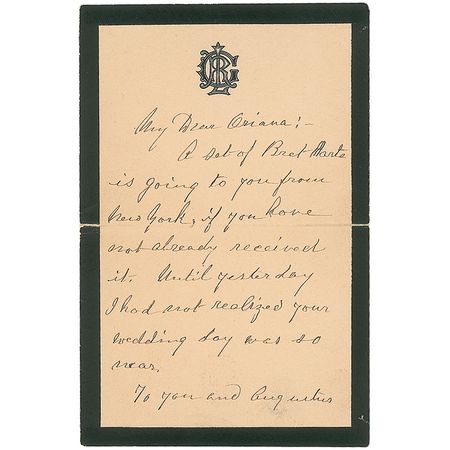 My Dear Oriana:-
A set of Bret Harte
is going to you from
New York, if you have
not already received
it. Until yesterday
I had not realized your
wedding day was so
near.
To you and Augustus